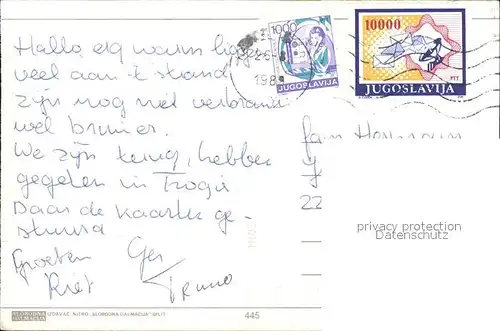 Hallo, erg warm liggen
veel aan 't strand
zijn nog niet verbrand
wel bruiner.
We zijn terug, hebben
gegeten in Trogir
Daar de kaarten ge-
stuurd
Groeten Ger
Riet
1000
198
JUGOSLAVIJA
10000
PTT
JUGOSLAVIJA
Fam
22
privacy protection
Datenschutz
SLOBODNA
DALMACIJA
IZDAVAČ NITRO „SLOBODNA DALMACIJA" SPLIT
445